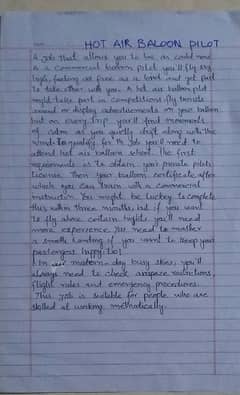 HOT AIR BALOON PILOT
A job that allows you to be on cloud nine
As a commercial balloon pilot you'll fly sky
high, feeling as free as a bird and get paid
to take others with you. A hot air balloon pilot
might take part in competitions, fly tourists
around or display advertisements on your balloon
but on every trip you'll find moments
of calm as you quietly drift along with the
wind. To qualify for the job you'll need to
attend hot air balloon school. The first
requirements is to obtain your private pilots
License. Then your balloon certificate after
which you can train with a commercial
instructor. You might be lucky to complete
this within three months, but if you want
to fly above certain heights, you'll need
more experience. You need to master
a smooth landing if you want to keep your
passengers happy too!
In modern-day busy skies, you'll
always need to check airspace restrictions,
flight rules and emergency procedures.
This job is suitable for people who are
skilled at working methodically.